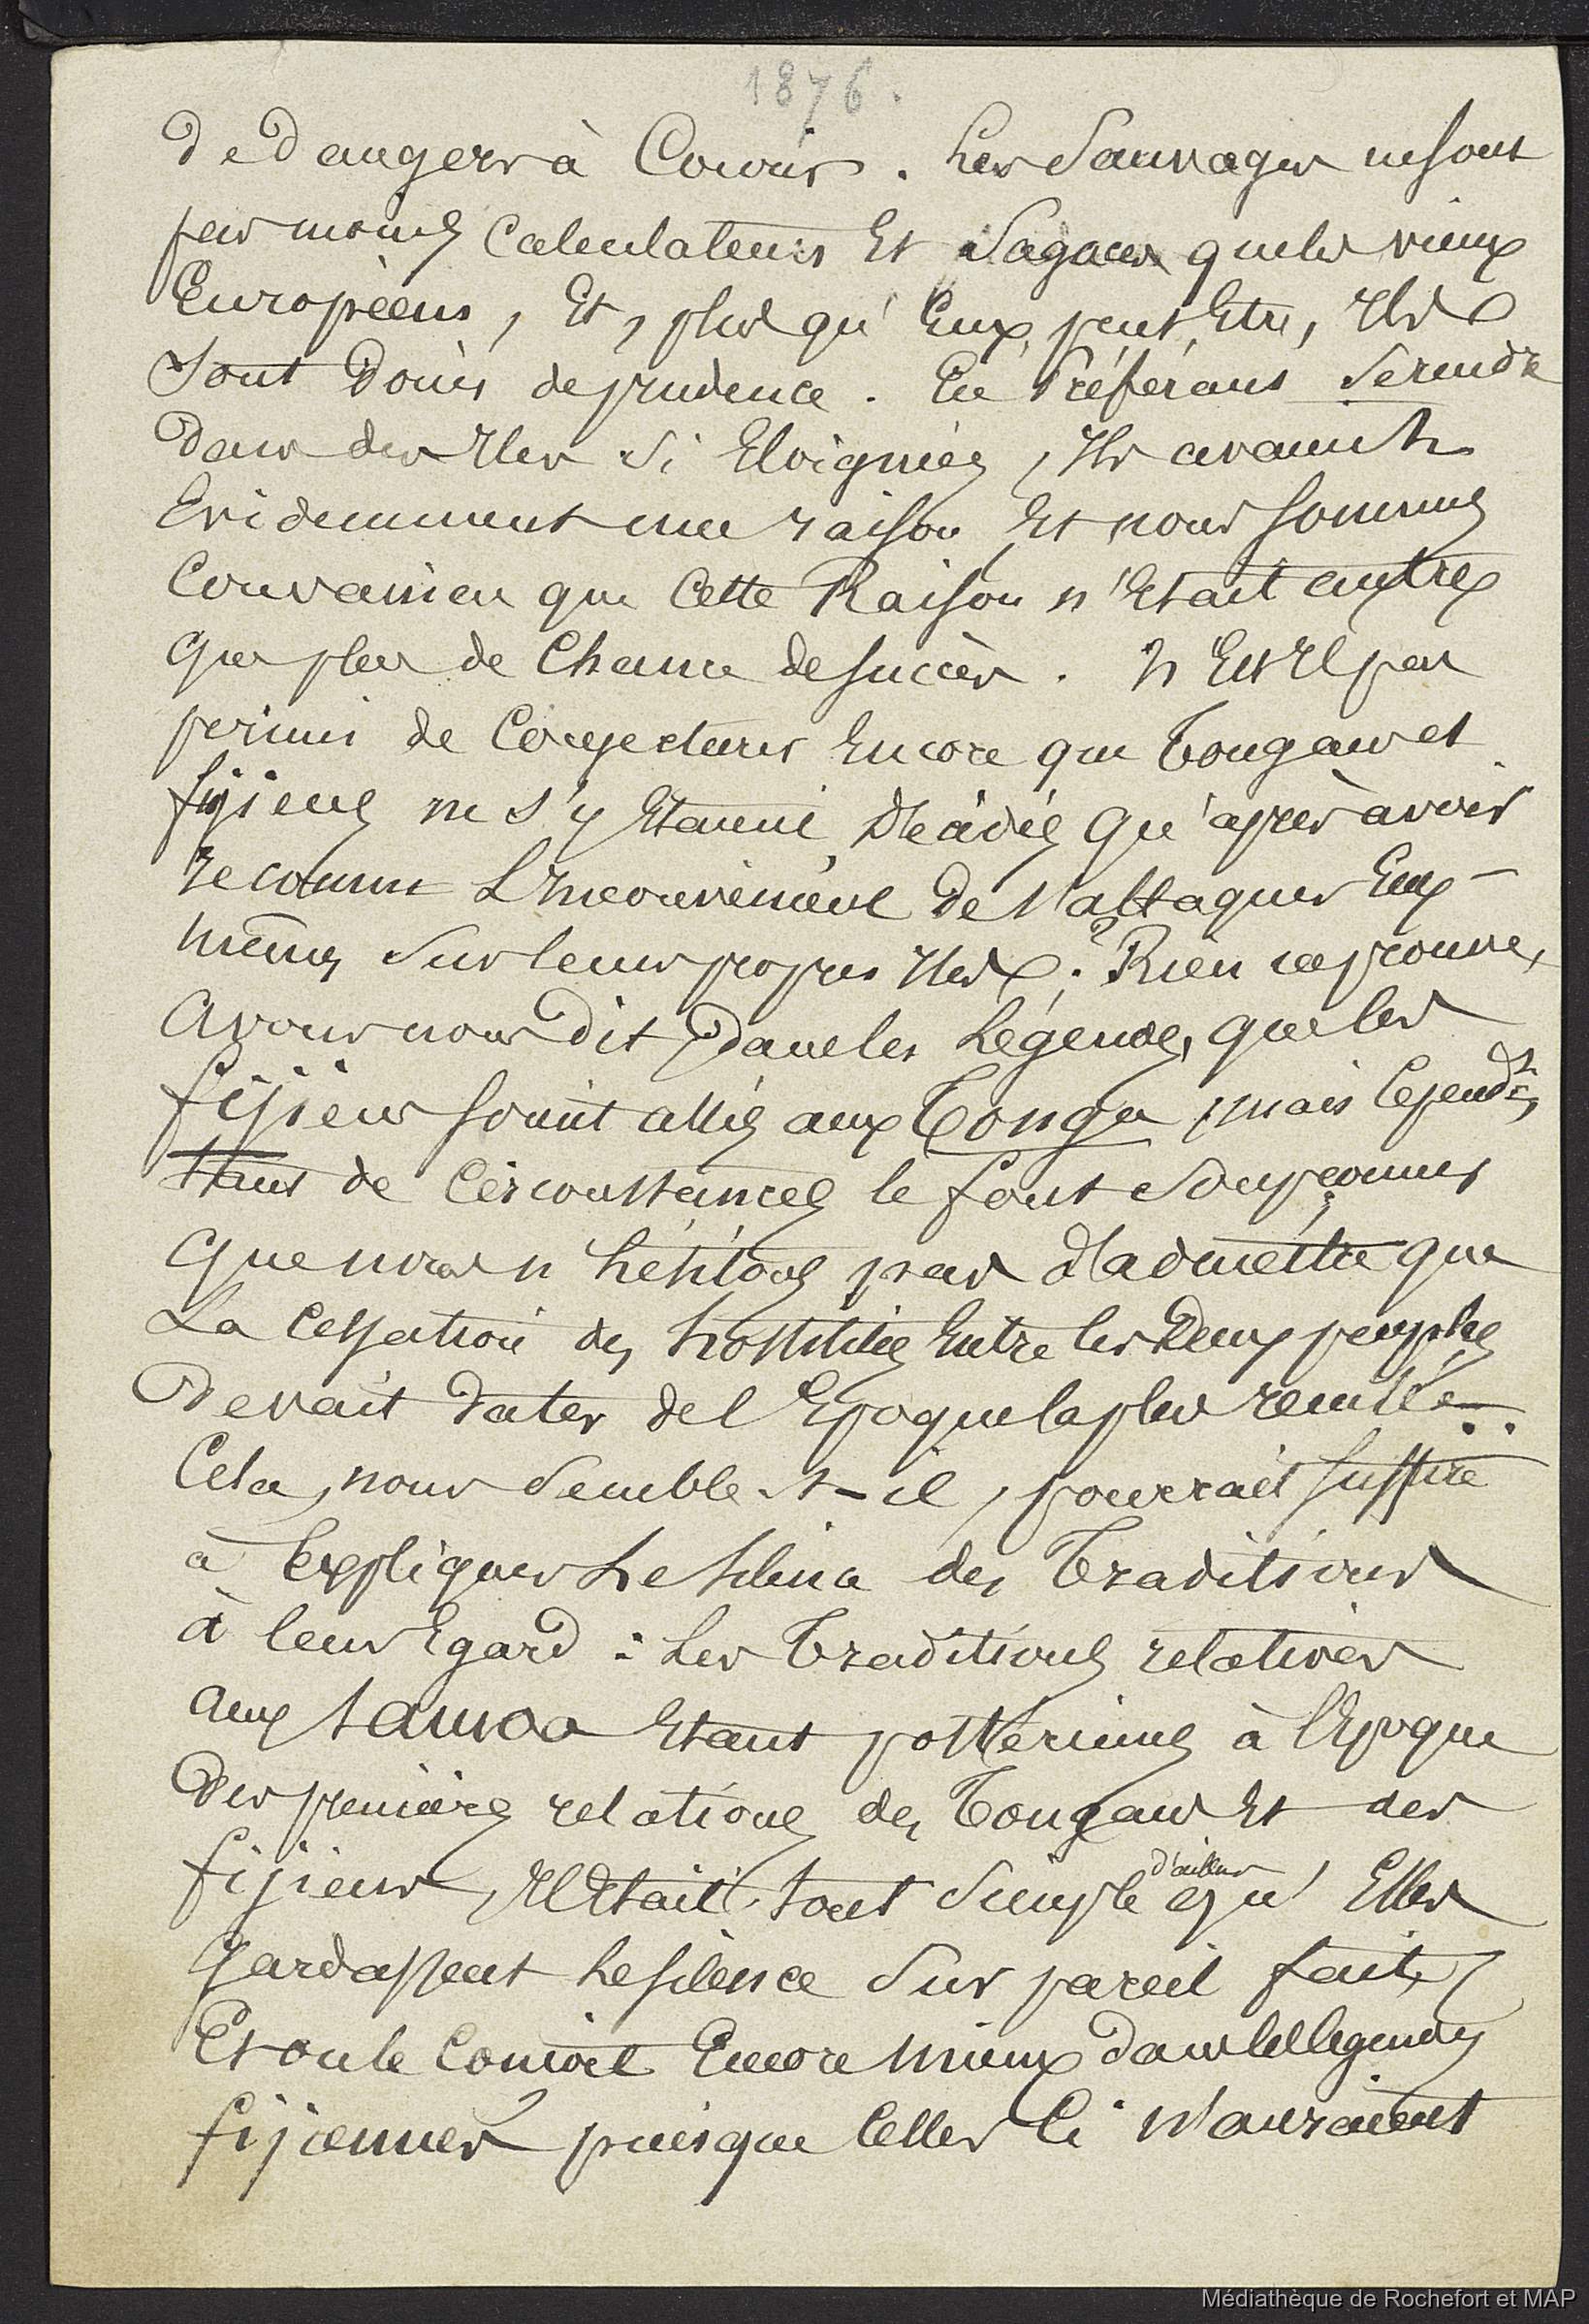 1876.
de Dangers à Courir. Les Sauvages ne sont
pas moins Calculateurs Et Sagaces que les vieux
Européens, Et, plus qu'Eux, peut Etre, Ils
Sont Doués de prudence. En Préférant Se rendre
Dans des Iles Si Eloignées, Ils avaient
Evidemment une raison Et nous sommes
Convaincu que Cette Raison n'Etait autre
que plus de Chance de succès. N'Est Il pas
permis de Conjecturer Encore que Tongans et
fijiens ne s'y Etaient Décidés qu'après avoir
reconnu L'Inconvénient de s'attaquer Eux-
mêmes Sur leurs propres Iles ? Rien ne prouve,
avons nous Dit, Dans les Légendes, que les
fijiens soient alliés aux Tonga, mais Cependt,
tant de Circonstances le font Soupçonner
que nous n'hésitons pas d'admettre que
La Cessation des hostilités Entre les Deux peuples
Devait Dater de l'Epoque la plus reculée.
Cela, nous Semble-t-il, pourrait suffire
à Expliquer Le silence des Traditions
à leur Egard : Les Traditions relatives
aux Samoa Etant postérieures à l'Epoque
Des premières relations des Tongans Et des
fijiens, Il Etait tout Simple d'ailleurs qu'Elles
gardassent Le silence Sur pareil fait,
Et on le Conçoit Encore mieux Dans les légendes
fijiennes puisque Celles Ci n'auraient
Médiathèque de Rochefort et MAP